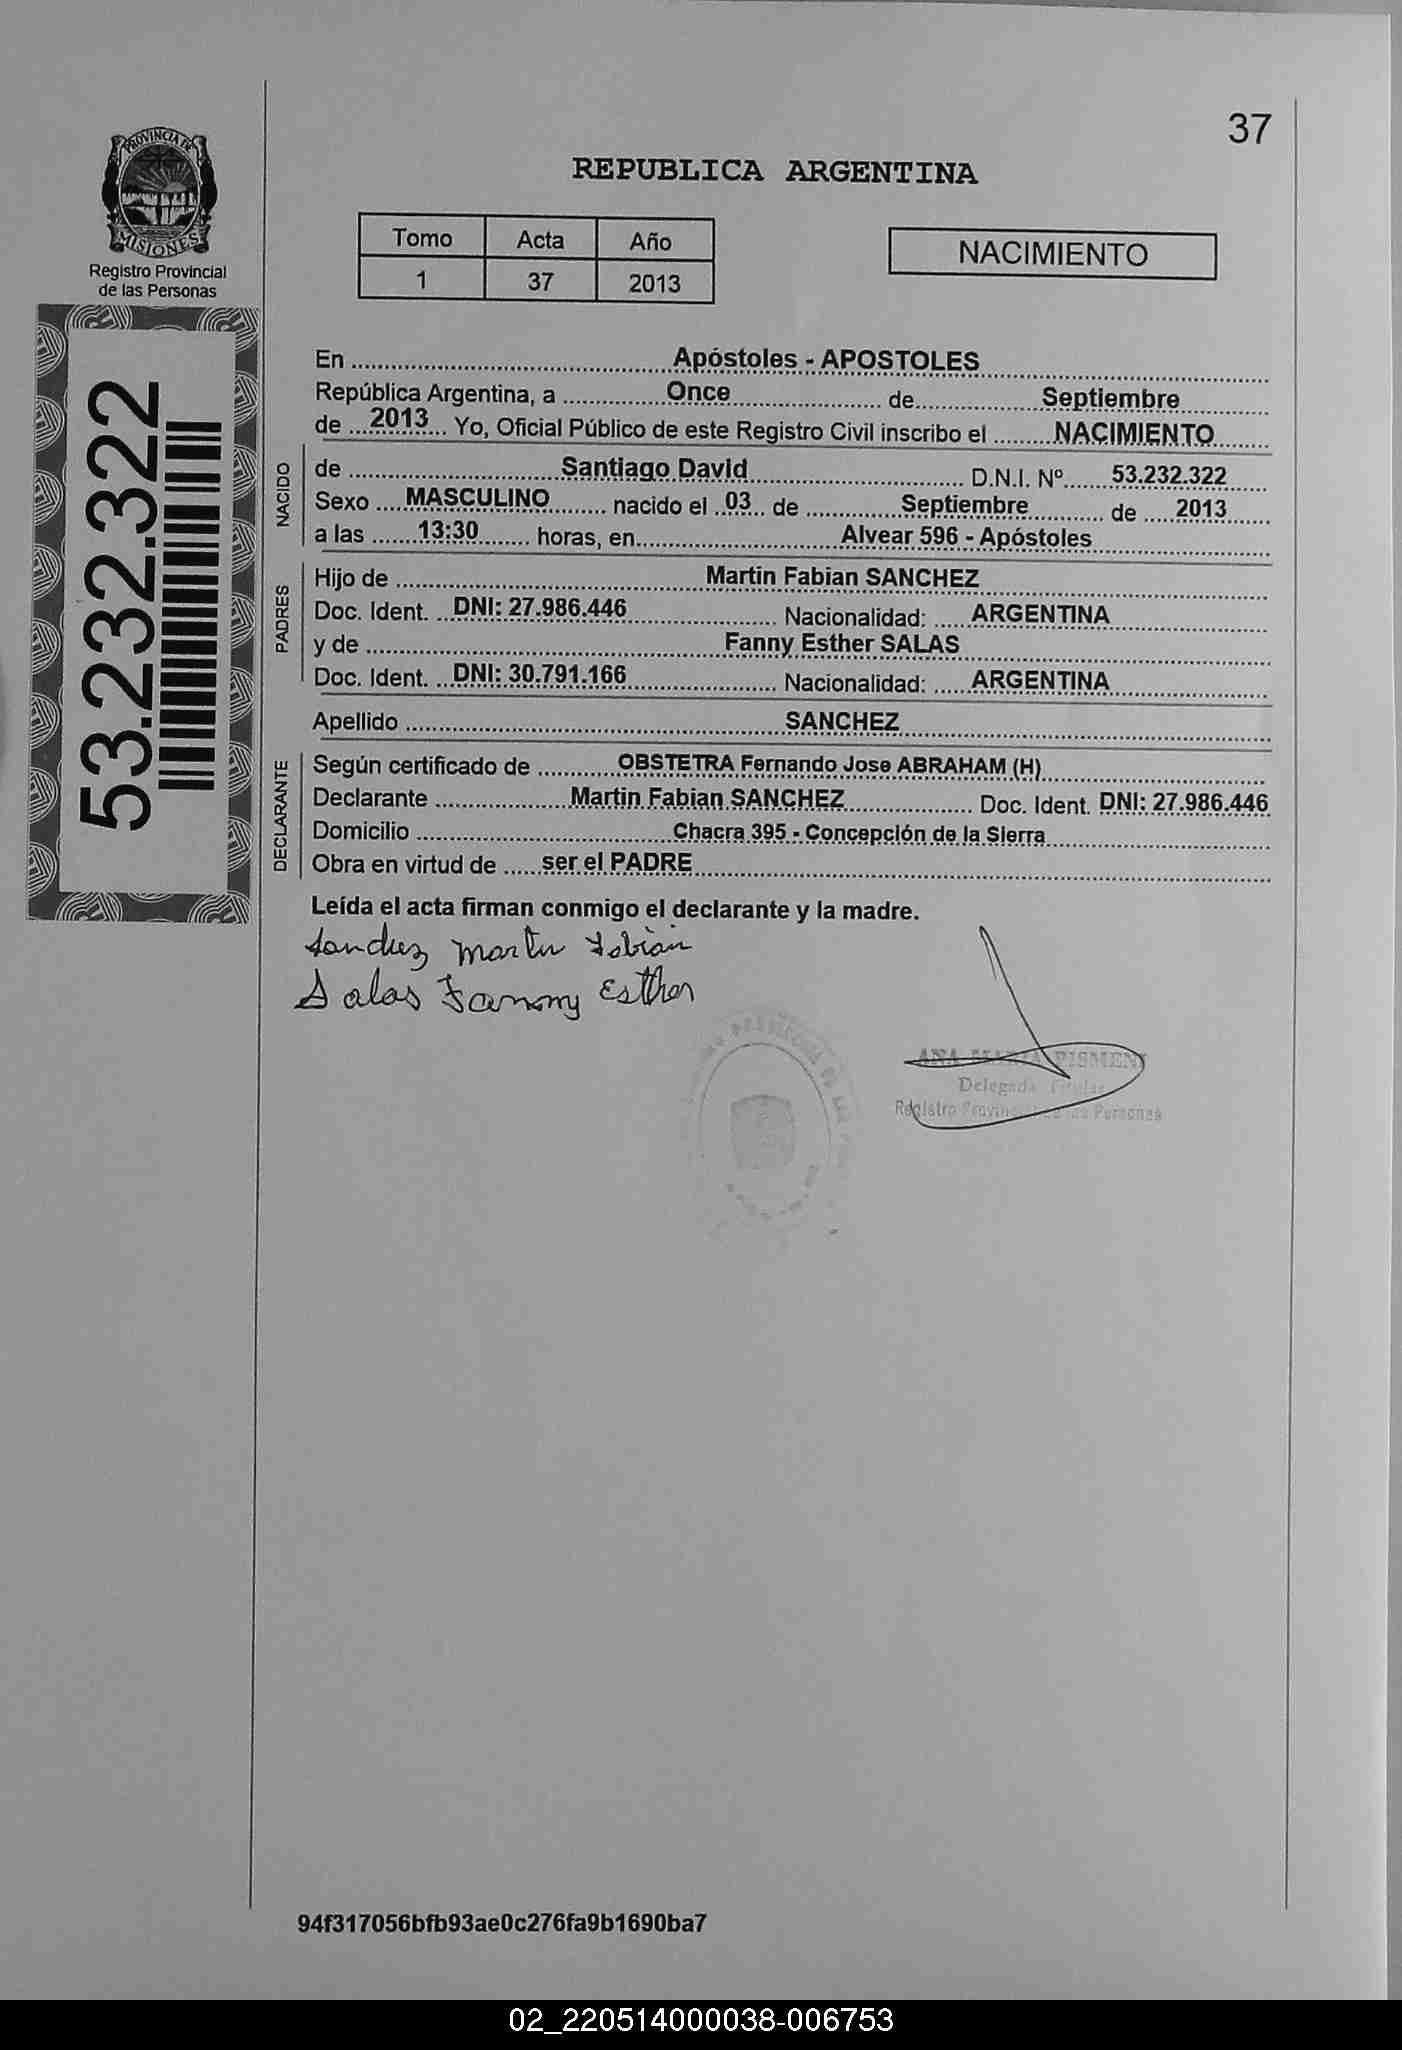 37
PROVINCIA DE
MISIONES
Registro Provincial
de las Personas
REPUBLICA ARGENTINA
Tomo Acta Año
1 37 2013
NACIMIENTO
53.232.322
En Apóstoles - APOSTOLES
República Argentina, a Once de Septiembre
de 2013 Yo, Oficial Público de este Registro Civil inscribo el NACIMIENTO
NACIDO
de Santiago David D.N.I. Nº 53.232.322
Sexo MASCULINO nacido el 03 de Septiembre de 2013
a las 13:30 horas, en Alvear 596 - Apóstoles
PADRES
Hijo de Martin Fabian SANCHEZ
Doc. Ident. DNI: 27.986.446 Nacionalidad: ARGENTINA
y de Fanny Esther SALAS
Doc. Ident. DNI: 30.791.166 Nacionalidad: ARGENTINA
Apellido SANCHEZ
DECLARANTE
Según certificado de OBSTETRA Fernando Jose ABRAHAM (H)
Declarante Martin Fabian SANCHEZ Doc. Ident. DNI: 27.986.446
Domicilio Chacra 395 - Concepción de la Sierra
Obra en virtud de ser el PADRE
Leída el acta firman conmigo el declarante y la madre.
Sanchez Martin Fabian
Salas Fanny Esther
ANA MARIA PISMENI
Delegada Titular
Registro Provincial de las Personas
94f317056bfb93ae0c276fa9b1690ba7
02_220514000038-006753